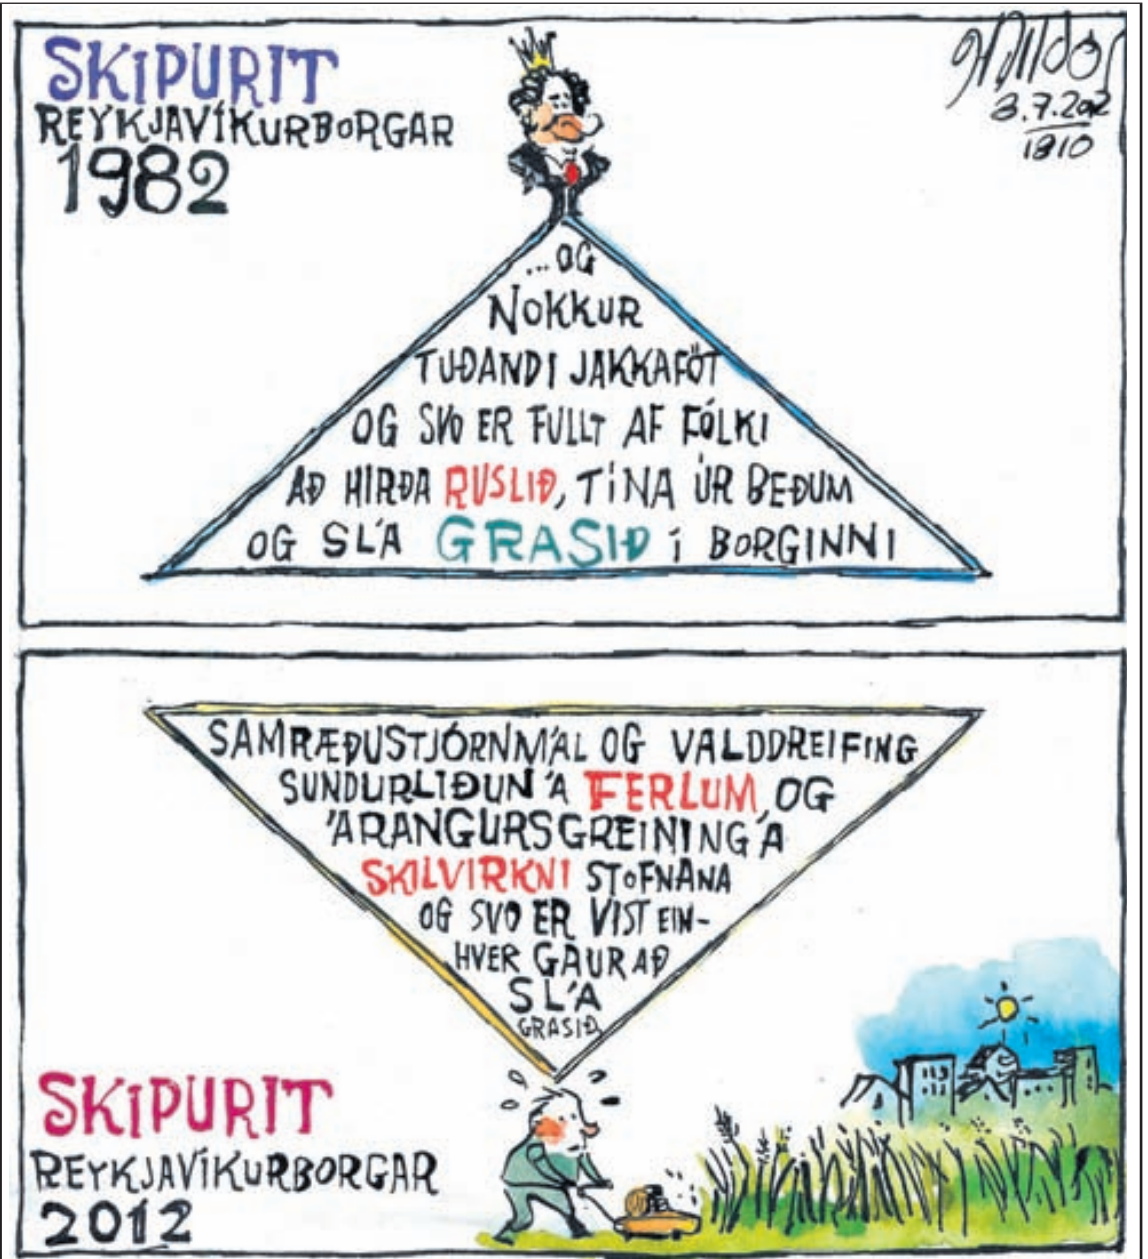 SKIPURIT
REYKJAVÍKURBORGAR
1982
3.7.2012
1810
...OG
NOKKUR
TUÐANDI JAKKAFÖT
OG SVO ER FULLT AF FÓLKI
AÐ HIRÐA RUSLIÐ, TÍNA ÚR BEÐUM
OG SLÁ GRASIÐ Í BORGINNI
SAMRÆÐUSTJÓRNMÁL OG VALDDREIFING
SUNDURLIÐUN Á FERLUM, OG
ÁRANGURSGREINING Á
SKILVIRKNI STOFNANA
OG SVO ER VIST EIN-
HVER GAUR AÐ
SLÁ
GRASIÐ
SKIPURIT
REYKJAVÍKURBORGAR
2012